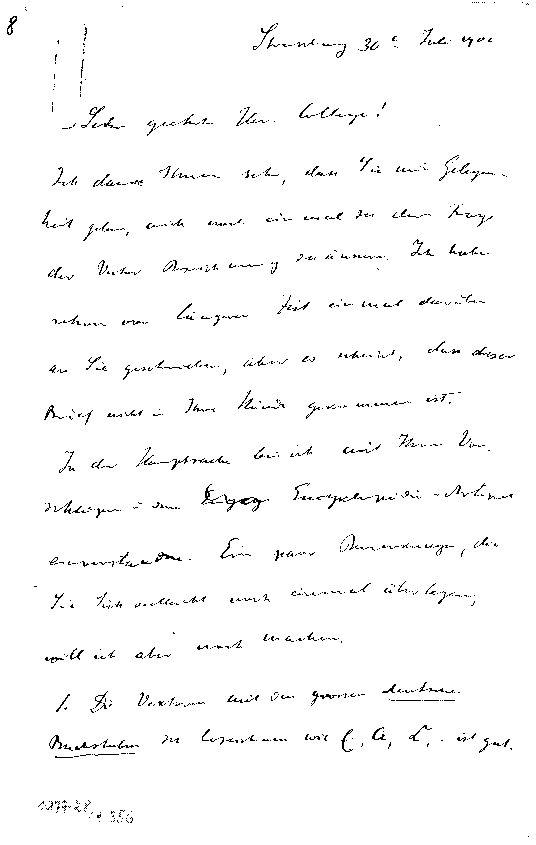 8
Strassburg 30 Juli 190
Sehr geehrter Herr College!
Ich danke Ihnen sehr, dass Sie mir Gelegen-
heit geben, mich noch einmal zu der Frage
der Vector Bezeichnung zu äussern. Ich habe
schon vor längerer Zeit einmal darüber
an Sie geschrieben, aber es scheint, dass dieser
Brief nicht in Ihre Hände gekommen ist.
In der Hauptsache bin ich mit Ihren Vor-
schlägen in dem Encyclopädie-Artikel
einverstanden. Ein paar Bemerkungen, die
Sie Sich vielleicht noch einmal überlegen,
will ich aber noch machen.
1. Die Vektoren mit den grossen deutschen
Buchstaben zu bezeichnen wie ist gut.
1977-28/A, 356